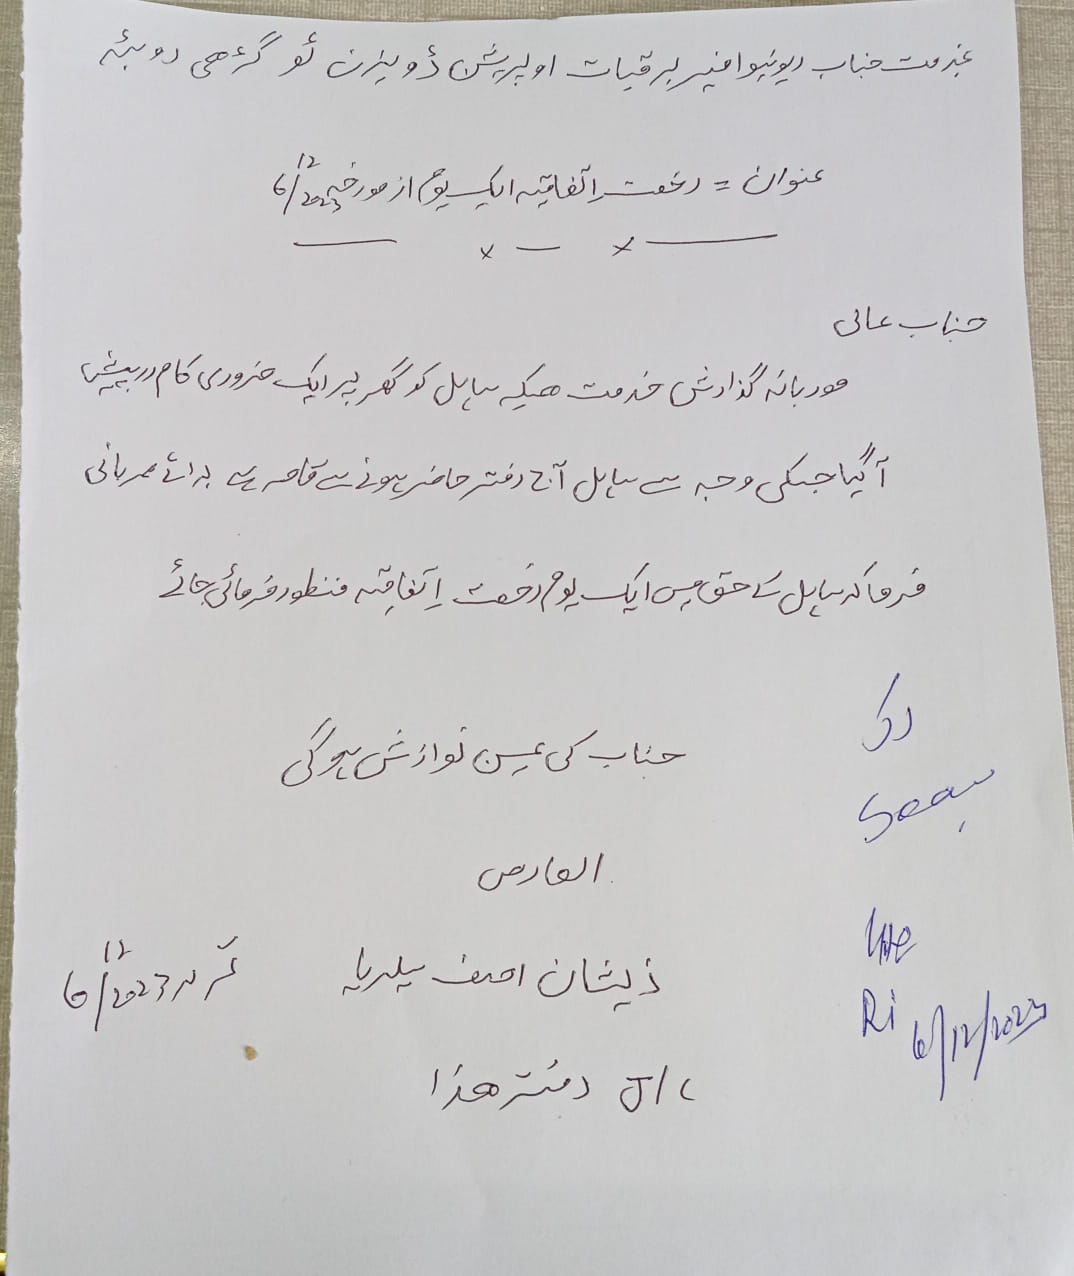 بخدمت جناب ریونیو آفیسر برقیات اوپریشن ڈویژن ٹو گڑھی دوپٹہ
عنوان = رخصت اِتفاقیہ ایک یوم از مورخہ 6/12/2023
جناب عالی
مودبانہ گذارش خدمت ھیکہ سایل کو گھر پر ایک ضروری کام درپیش
آگیا جسکی وجہ سے سایل آج دفتر حاضر ہونے سے قاصر ہے برائے مہربانی
فرما کر سایل کے حق میں ایک یوم رخصت اِتفاقیہ منظور فرمائی جائے
جناب کی عین نوازش ہوگی
العارض
ذیشان آصف
6/12/2023
J/C دفتر ھذا
Ri 6/12/2023